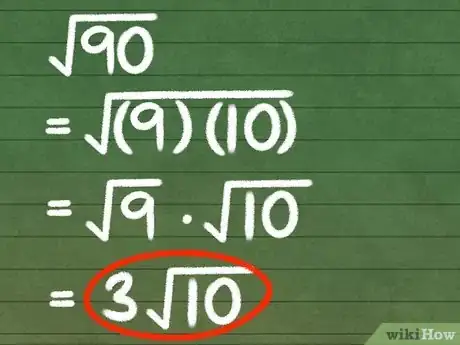 √90
= √(9)(10)
= √9 · √10
= 3√10
wikiHow